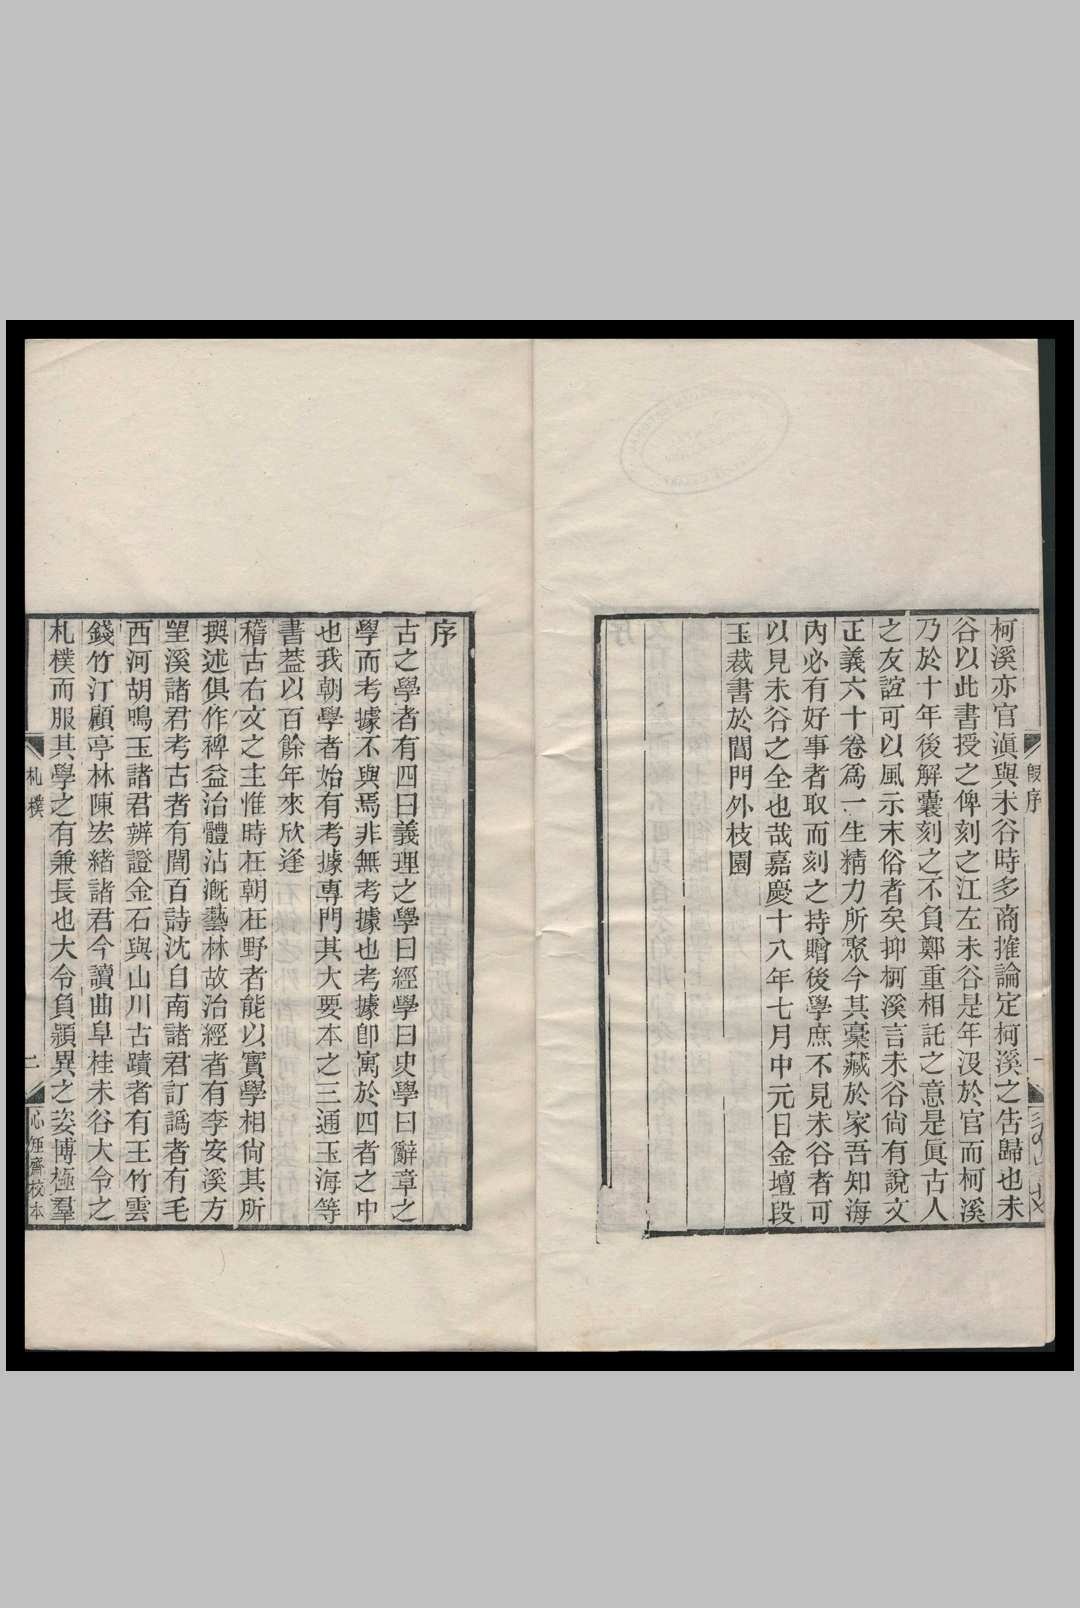 柯溪亦官滇與未谷時多商搉論定柯溪之告歸也未
谷以此書授之俾刻之江左未谷是年没於官而柯溪
乃於十年後解囊刻之不負鄭重相託之意是眞古人
之友誼可以風示末俗者矣抑柯溪言未谷尙有說文
正義六十卷爲一生精力所聚今其稾藏於家吾知海
內必有好事者取而刻之持贈後學庶不見未谷者可
以見未谷之全也哉嘉慶十八年七月中元日金壇段
玉裁書於閶門外枝園
段序
序
古之學者有四曰義理之學曰經學曰史學曰辭章之
學而考據不與焉非無考據也考據卽寓於四者之中
也我朝學者始有考據專門其大要本之三通玉海等
書葢以百餘年來欣逢
稽古右文之主惟時在朝在野者能以實學相尙其所
撰述俱作裨益治體沾漑藝林故治經者有李安溪方
望溪諸君考古者有閻百詩沈自南諸君訂譌者有毛
西河胡鳴玉諸君辨證金石與山川古蹟者有王竹雲
錢竹汀顧亭林陳宏緒諸君今讀曲阜桂未谷大令之
札樸而服其學之有兼長也大令負穎異之姿博極羣
札樸
二
心矩齋校本